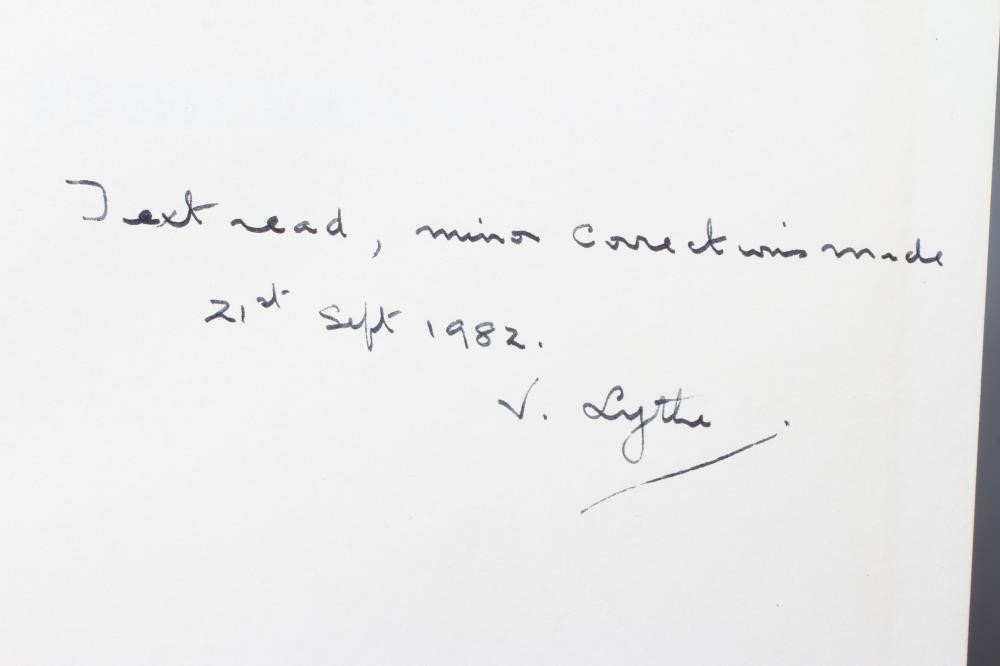 Text read, minor corrections made
21st Sept 1982.
V. Lythe.